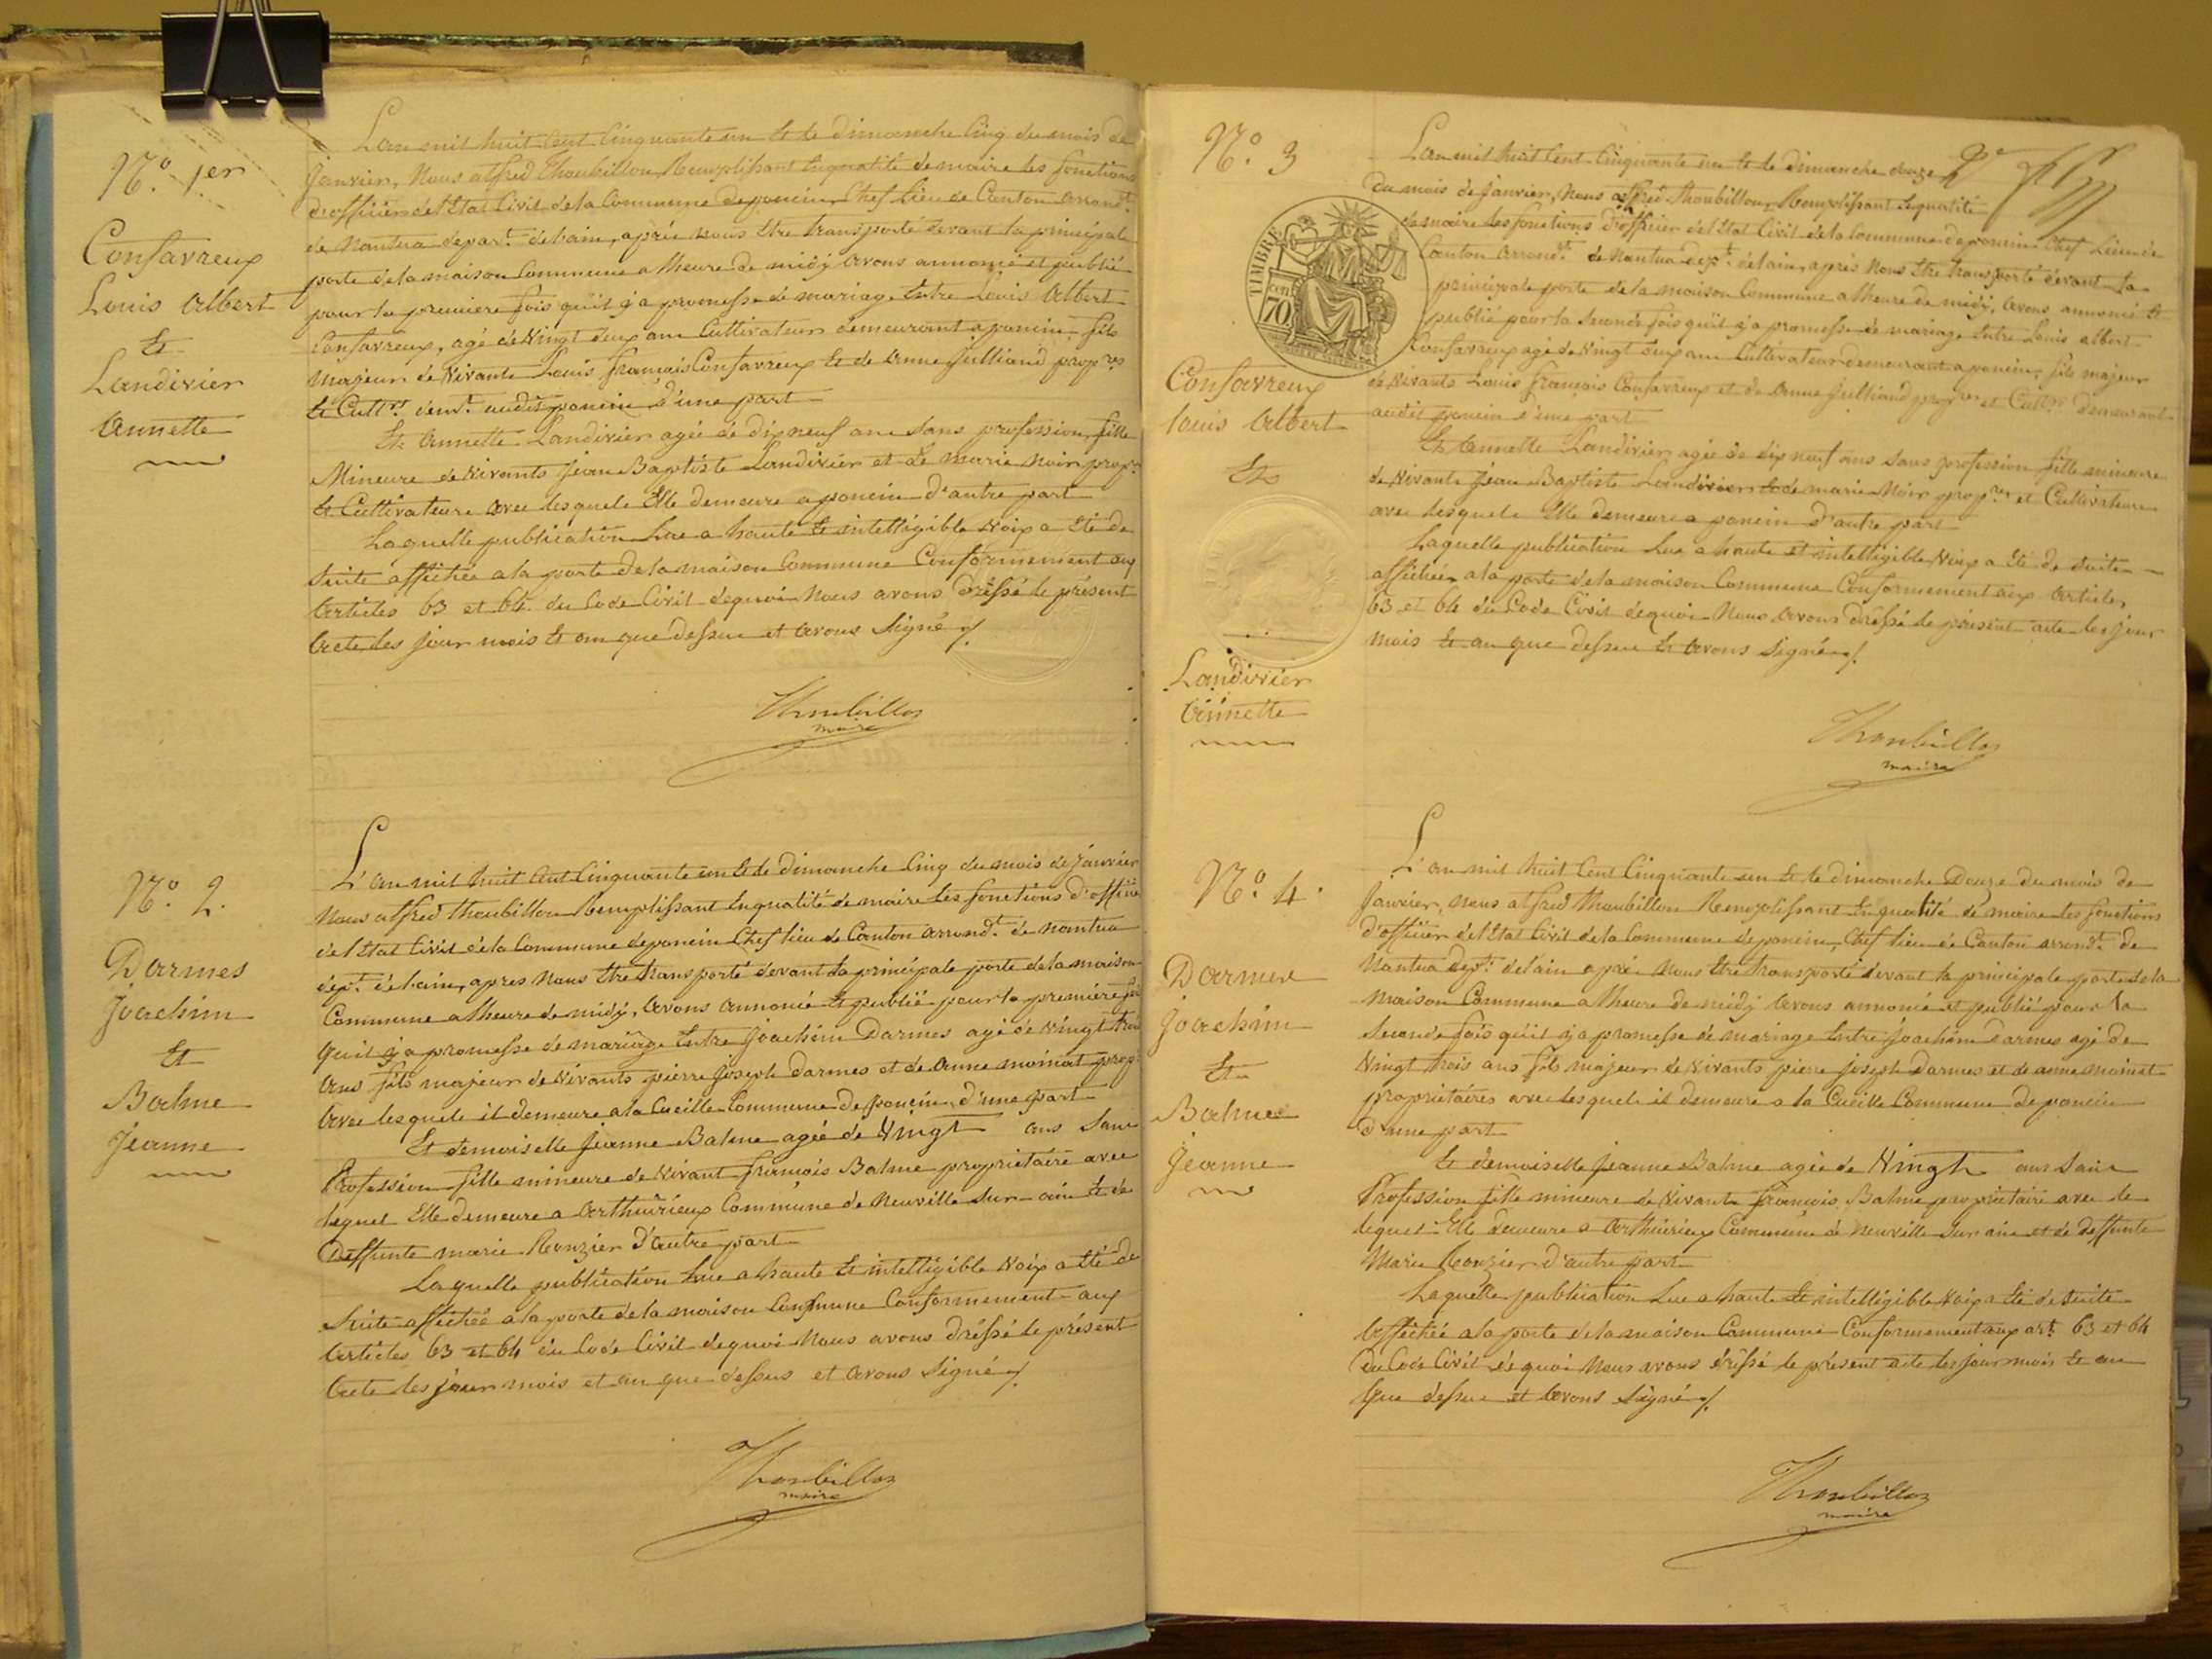 N.o 1er
Confavreux
Louis Albert
Et
Landivier
Annette
L'an mil huit cent Cinquante un Et le dimanche Cinq du mois de
Janvier, Nous alfred Thoubillon Remplissant Enqualité de maire les fonctions
d'officier de l'Etat Civil de la Commune de poncin Chef lieu de Canton arrond.t
de Nantua depar.t de lain, après nous Etre transporté devant la principale
porte de la maison Commune a lheure de midy avons annoncé et publié
pour la premiere fois qu'il y a promesse de mariage Entre Louis Albert
Confavreux, agé de Vingt deux ans Cultivateur demeurant a poncin, fils
majeur de Vivants Louis françois Confavreux Et de Anne Julliand prop.res
Et Cult.rs dem.t audit poncin d'une part
Et Annette Landivier agée de dix neuf ans Sans profession, fille
Mineure de Vivants Jean Baptiste Landivier et de marie Noir prop.re
Et Cultivateurs avec lesquels Elle demeure a poncin d'autre part
Laquelle publication Lue a haute Et intelligible Voix a Eté de
Suite affichée a la porte de la maison Commune Conformement aux
Articles 63 et 64 du Code Civil dequoi Nous avons dréssé le présent
Acte les jour mois Et an que dessus et avons Signé ./.
Thoubillon
maire
N.o 2.
Darmes
Joachim
Et
Balme
Jeanne
L'an mil huit Cent Cinquante un Et le Dimanche Cinq du mois de Janvier
Nous alfred Thoubillon Remplissant Enqualité de maire Les fonctions d'officier
de l'Etat Civil de la Commune de poncin Chef lieu de Canton arrond.t de nantua
dép.t de lain, apres Nous Etre transporté devant la principale porte de la maison
Commune a lheure de midy, avons annoncé Et publié pour la premiere fois
Quil y a promesse de mariage Entre Joachim Darmes agé de Vingt trois
Ans fils majeur de Vivants pierre Joseph darmes et de Anne moinat prop.
Avec lesquels il demeure a la Cueille Commune De poncin, d'une part
Et demoiselle Jeanne Balme agée de Vingt ans Sans
Profession fille mineure de Vivant François Balme propriétaire avec
lequel Elle demeure a Arthuirieux Commune de Neuville Sur-ain Et de
Deffunte marie Ronzier D'autre part
Laquelle publication Lue a haute Et intelligible Voix a Eté de
Suite affichée a la porte de la maison Commune Conformement aux
Articles 63 et 64 du Code Civil dequoi Nous avons dréssé le présent
Acte les jour mois et an que dessus et avons Signé ./.
Thoubillon
maire
N.o 3
Confavreux
louis Albert
Et
Landivier
Annette
TIMBRE
70 cen
L'an mil huit Cent Cinquante un Et le dimanche douze
du mois de Janvier, Nous alfred Thoubillon, Remplissant Enqualité
de maire Les fonctions d'officier de l'Etat Civil de la Commune de poncin Chef Lieu de
Canton arrond.t de Nantua dep.t de lain, après Nous Etre transporté devant la
principale porte de la maison Commune a lheure de midy, avons annoncé Et
publié pour la Seconde fois quil y a promesse de mariage Entre Louis albert
Confavreux agé de Vingt deux ans Cultivateur demeurant a poncin, fils majeur
de Vivants Louis françois Confavreux et de Anne Julliand prop.res et Cult.rs demeurant
audit poncin d'une part
Et Annette Landivier agée de dix neuf ans Sans profession fille mineure
de Vivants Jean Baptiste Landivier Et de marie Noir prop.res et Cultivateurs
avec lesquels Elle demeure a poncin d'autre part
Laquelle publication Lue a haute et intelligible Voix a Eté de Suite
affichée a la porte de la maison Commune Conformement aux Articles
63 et 64 du Code Civil dequoi Nous avons dréssé le présent acte les jour
mois Et an que dessus Et avons Signé ./.
Thoubillon
maire
N.o 4.
Darmes
Joachim
Et
Balme
Jeanne
L'an mil huit Cent Cinquante un Et le dimanche Douze du mois de
Janvier, nous alfred Thoubillon Remplissant En qualité de maire les fonctions
d'officier de l'Etat Civil de la Commune de poncin, Chef lieu de Canton arrond.t de
Nantua dep.t de lain après Nous Etre transporté devant la principale porte de la
Maison Commune a lheure de midy avons annoncé et publié pour la
Seconde fois quil y a promesse de mariage Entre Joachim darmes agé de
Vingt trois ans fils majeur de Vivants pierre joseph Darmes et de anne moinat
propriétaires avec lesquels il demeure a la Cueille Commune De poncin
d'une part
Et demoiselle Jeanne Balme agée de Vingt ans Sans
Profession fille mineure de Vivant françois Balme propriétaire avec le
lequel Elle demeure a Arthuirieux Commune de Neuville Sur ain et de deffunte
Marie Ronzier d'autre part
Laquelle publication Lue a haute Et intelligible Voix a Eté de Suite
affichée a la porte de la maison Commune Conformement aux art.s 63 et 64
Du Code Civil de quoi Nous avons dréssé le présent acte les jour mois Et an
Que dessus et avons Signé ./.
Thoubillon
maire